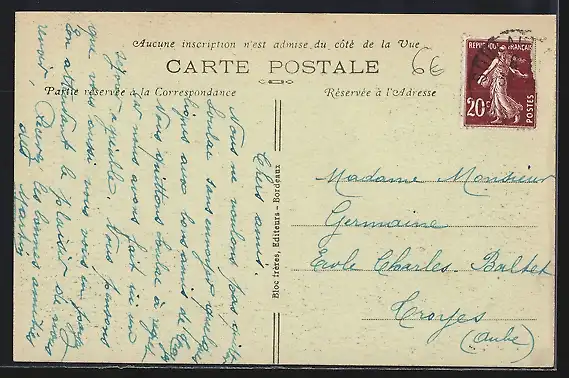 Aucune inscription n'est admise du côté de la Vue
6€
CARTE POSTALE
Partie réservée à la Correspondance
Réservée à l'Adresse
REPUBLIQUE FRANÇAISE
20c
POSTES
Bloc frères, Editeurs - Bordeaux
Chers amis.
Nous ne voulons pas quitter
Soulac sans envoyer quelques
lignes aux bons amis de Troyes
Nous quittons Soulac à regret
car nous avons fait ici un
séjour agréable. Nous pensons
que vous aussi vous vous
En attendant le plaisir de vous
revoir. Recevez les bonnes amitiés
des Martin
Madame Monsieur
Germaine
Ecole Charles Baltet
Troyes
(Aube)